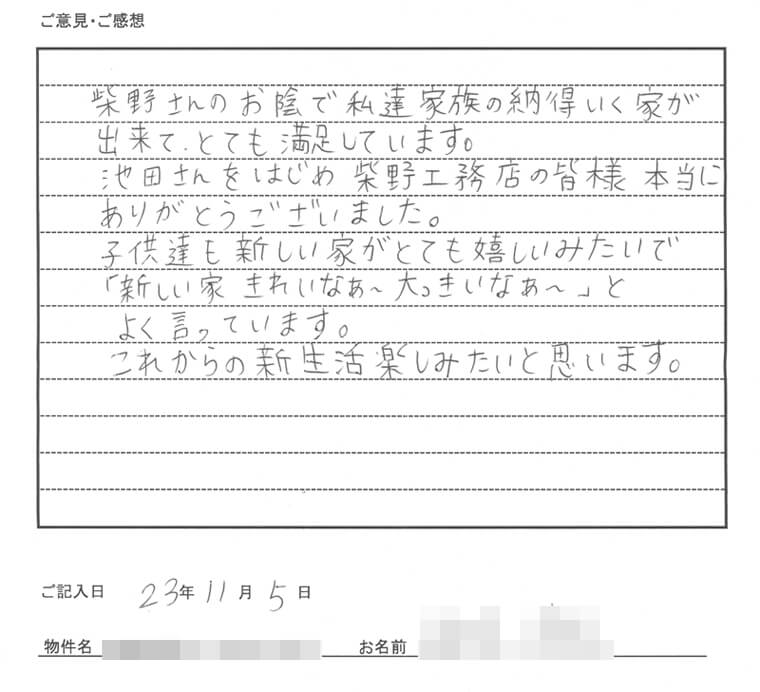 ご意見・ご感想
柴野さんのお陰で私達家族の納得いく家が
出来て、とても満足しています。
池田さんをはじめ 柴野工務店の皆様 本当に
ありがとうございました。
子供達も新しい家がとても嬉しいみたいで
「新しい家 きれいなぁ～ 大っきいなぁ～」と
よく言っています。
これからの新生活楽しみたいと思います。
ご記入日 23年 11月 5日
物件名 お名前